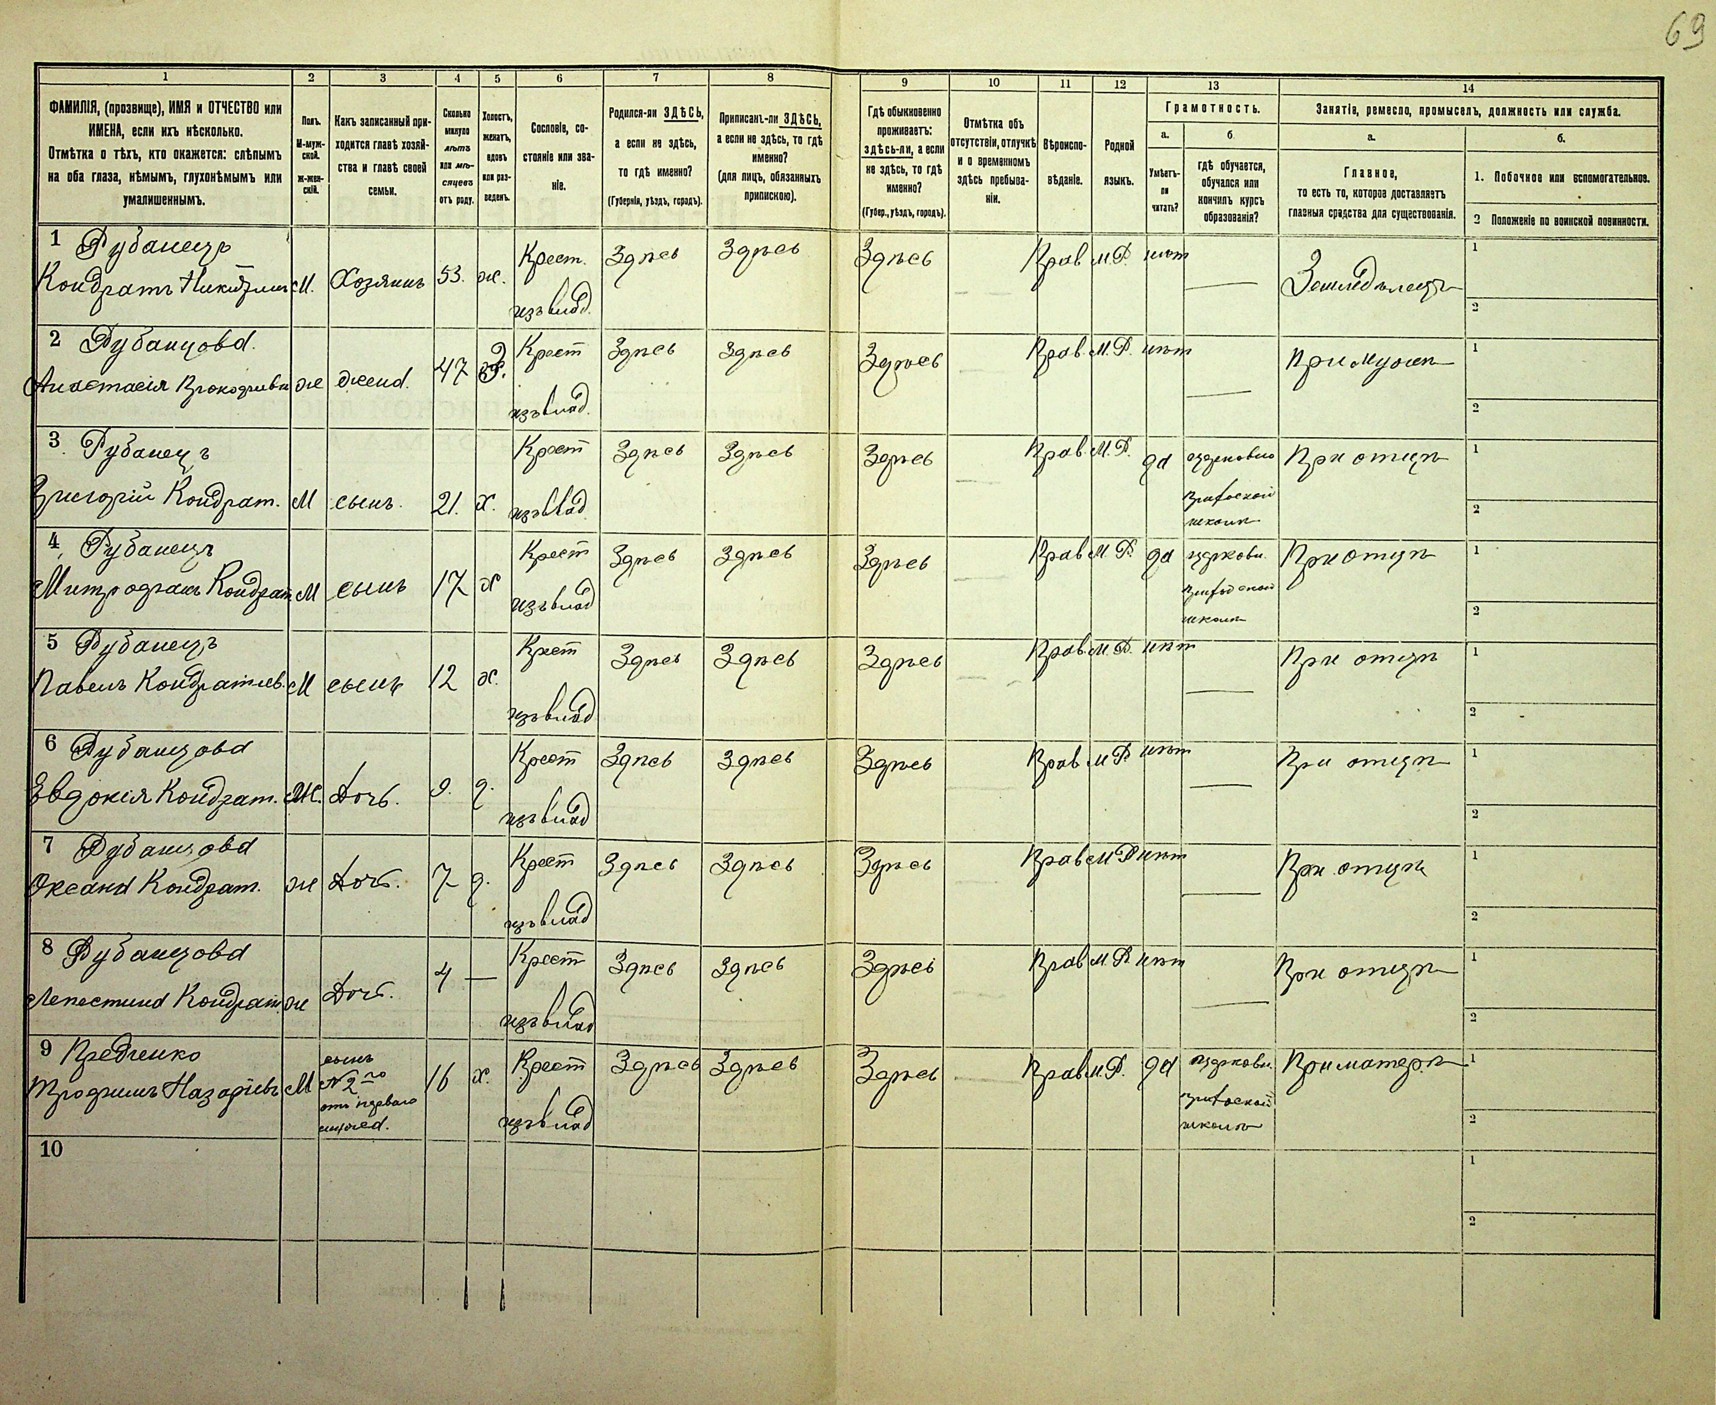 69
1 2 3 4 5 6 7 8 9 10 11 12 13 14
ФАМИЛІЯ, (прозвище), ИМЯ и ОТЧЕСТВО или
ИМЕНА, если ихъ нѣсколько.
Отмѣтка о тѣхъ, кто окажется: слѣпымъ
на оба глаза, нѣмымъ, глухонѣмымъ или
умалишеннымъ.
Полъ.
М-муж-
ской.
Ж-жен-
скій.
Какъ записанный при-
ходится главѣ хозяй-
ства и главѣ своей
семьи.
Сколько
минуло
лѣтъ
или мѣ-
сяцевъ
отъ роду.
Холостъ,
женатъ,
вдовъ
или раз-
веденъ.
Сословіе, со-
стояніе или зва-
ніе.
Родился-ли ЗДѢСЬ,
а если не здѣсь,
то гдѣ именно?
(Губернія, уѣздъ, городъ).
Приписанъ-ли ЗДѢСЬ,
а если не здѣсь, то гдѣ
именно?
(для лицъ, обязанныхъ
припискою).
Гдѣ обыкновенно
проживаетъ:
здѣсь-ли, а если
не здѣсь, то гдѣ
именно?
(Губер., уѣздъ, городъ).
Отмѣтка объ
отсутствіи, отлучкѣ
и о временномъ
здѣсь пребыва-
ніи.
Вѣроиспо-
вѣданіе.
Родной
языкъ.
Грамотность.
а.
Умѣетъ-
ли
читать?
б.
гдѣ обучается,
обучался или
кончилъ курсъ
образованія?
Занятіе, ремесло, промыселъ, должность или служба.
а.
Главное,
то есть то, которое доставляетъ
главныя средства для существованія.
б.
1. Побочное или вспомогательное.
2 Положеніе по воинской повинности.
1 Рубанецъ
Кондратъ Никифъ М. Хозяинъ 53. ж. Крест. изъ влад. Здѣсь Здѣсь Здѣсь Прав М.Р. нѣт — Земледѣлецъ 1 2
2 Рубанцова.
Анастасія Прокофьевн ж жена. 47 з. Крест изъ влад. Здѣсь Здѣсь Здѣсь Прав М.Р. нѣт — При мужѣ 1 2
3. Рубанецъ
Григорій Кондрат. М сынъ. 21. х. Крест изъ влад. Здѣсь Здѣсь Здѣсь Прав М.Р. да церковно школѣ При отцѣ 1 2
4 Рубанецъ
Митрофанъ Кондрат М сынъ 17 х Крест изъ влад Здѣсь Здѣсь Здѣсь Прав М.Р. да церковн. школѣ При отцѣ 1 2
5 Рубанецъ
Павелъ Кондратьев. М сынъ 12 х. Крест изъ влад Здѣсь Здѣсь Здѣсь Прав М.Р. нѣт — При отцѣ 1 2
6 Рубанцова
Евдокія Кондрат. Ж. Дочь. 9. д. Крест изъ влад Здѣсь Здѣсь Здѣсь Прав М.Р нѣт — При отцѣ 1 2
7 Рубанцова
Оксана Кондрат. ж Дочь. 7 д. Крест изъ влад Здѣсь Здѣсь Здѣсь Прав М.Р нѣт — При отцѣ 1 2
8 Рубанцова
Кондрат. ж Дочь. 4 — Крест изъ влад Здѣсь Здѣсь Здѣсь Прав М.Р. нѣт — При отцѣ 1 2
9
Трофимъ Назарьевъ М сынъ № 2го отъ перваго 16 х. Крест изъ влад Здѣсь Здѣсь Здѣсь Прав М.Р. да церковн. школѣ При матерѣ 1 2
10 1 2